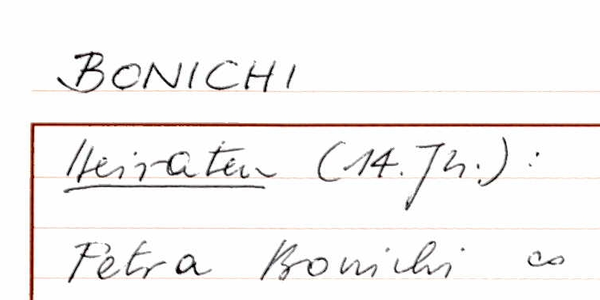 BONICHI
Heiraten (14. Jh.):
Petra Bonichi ∞